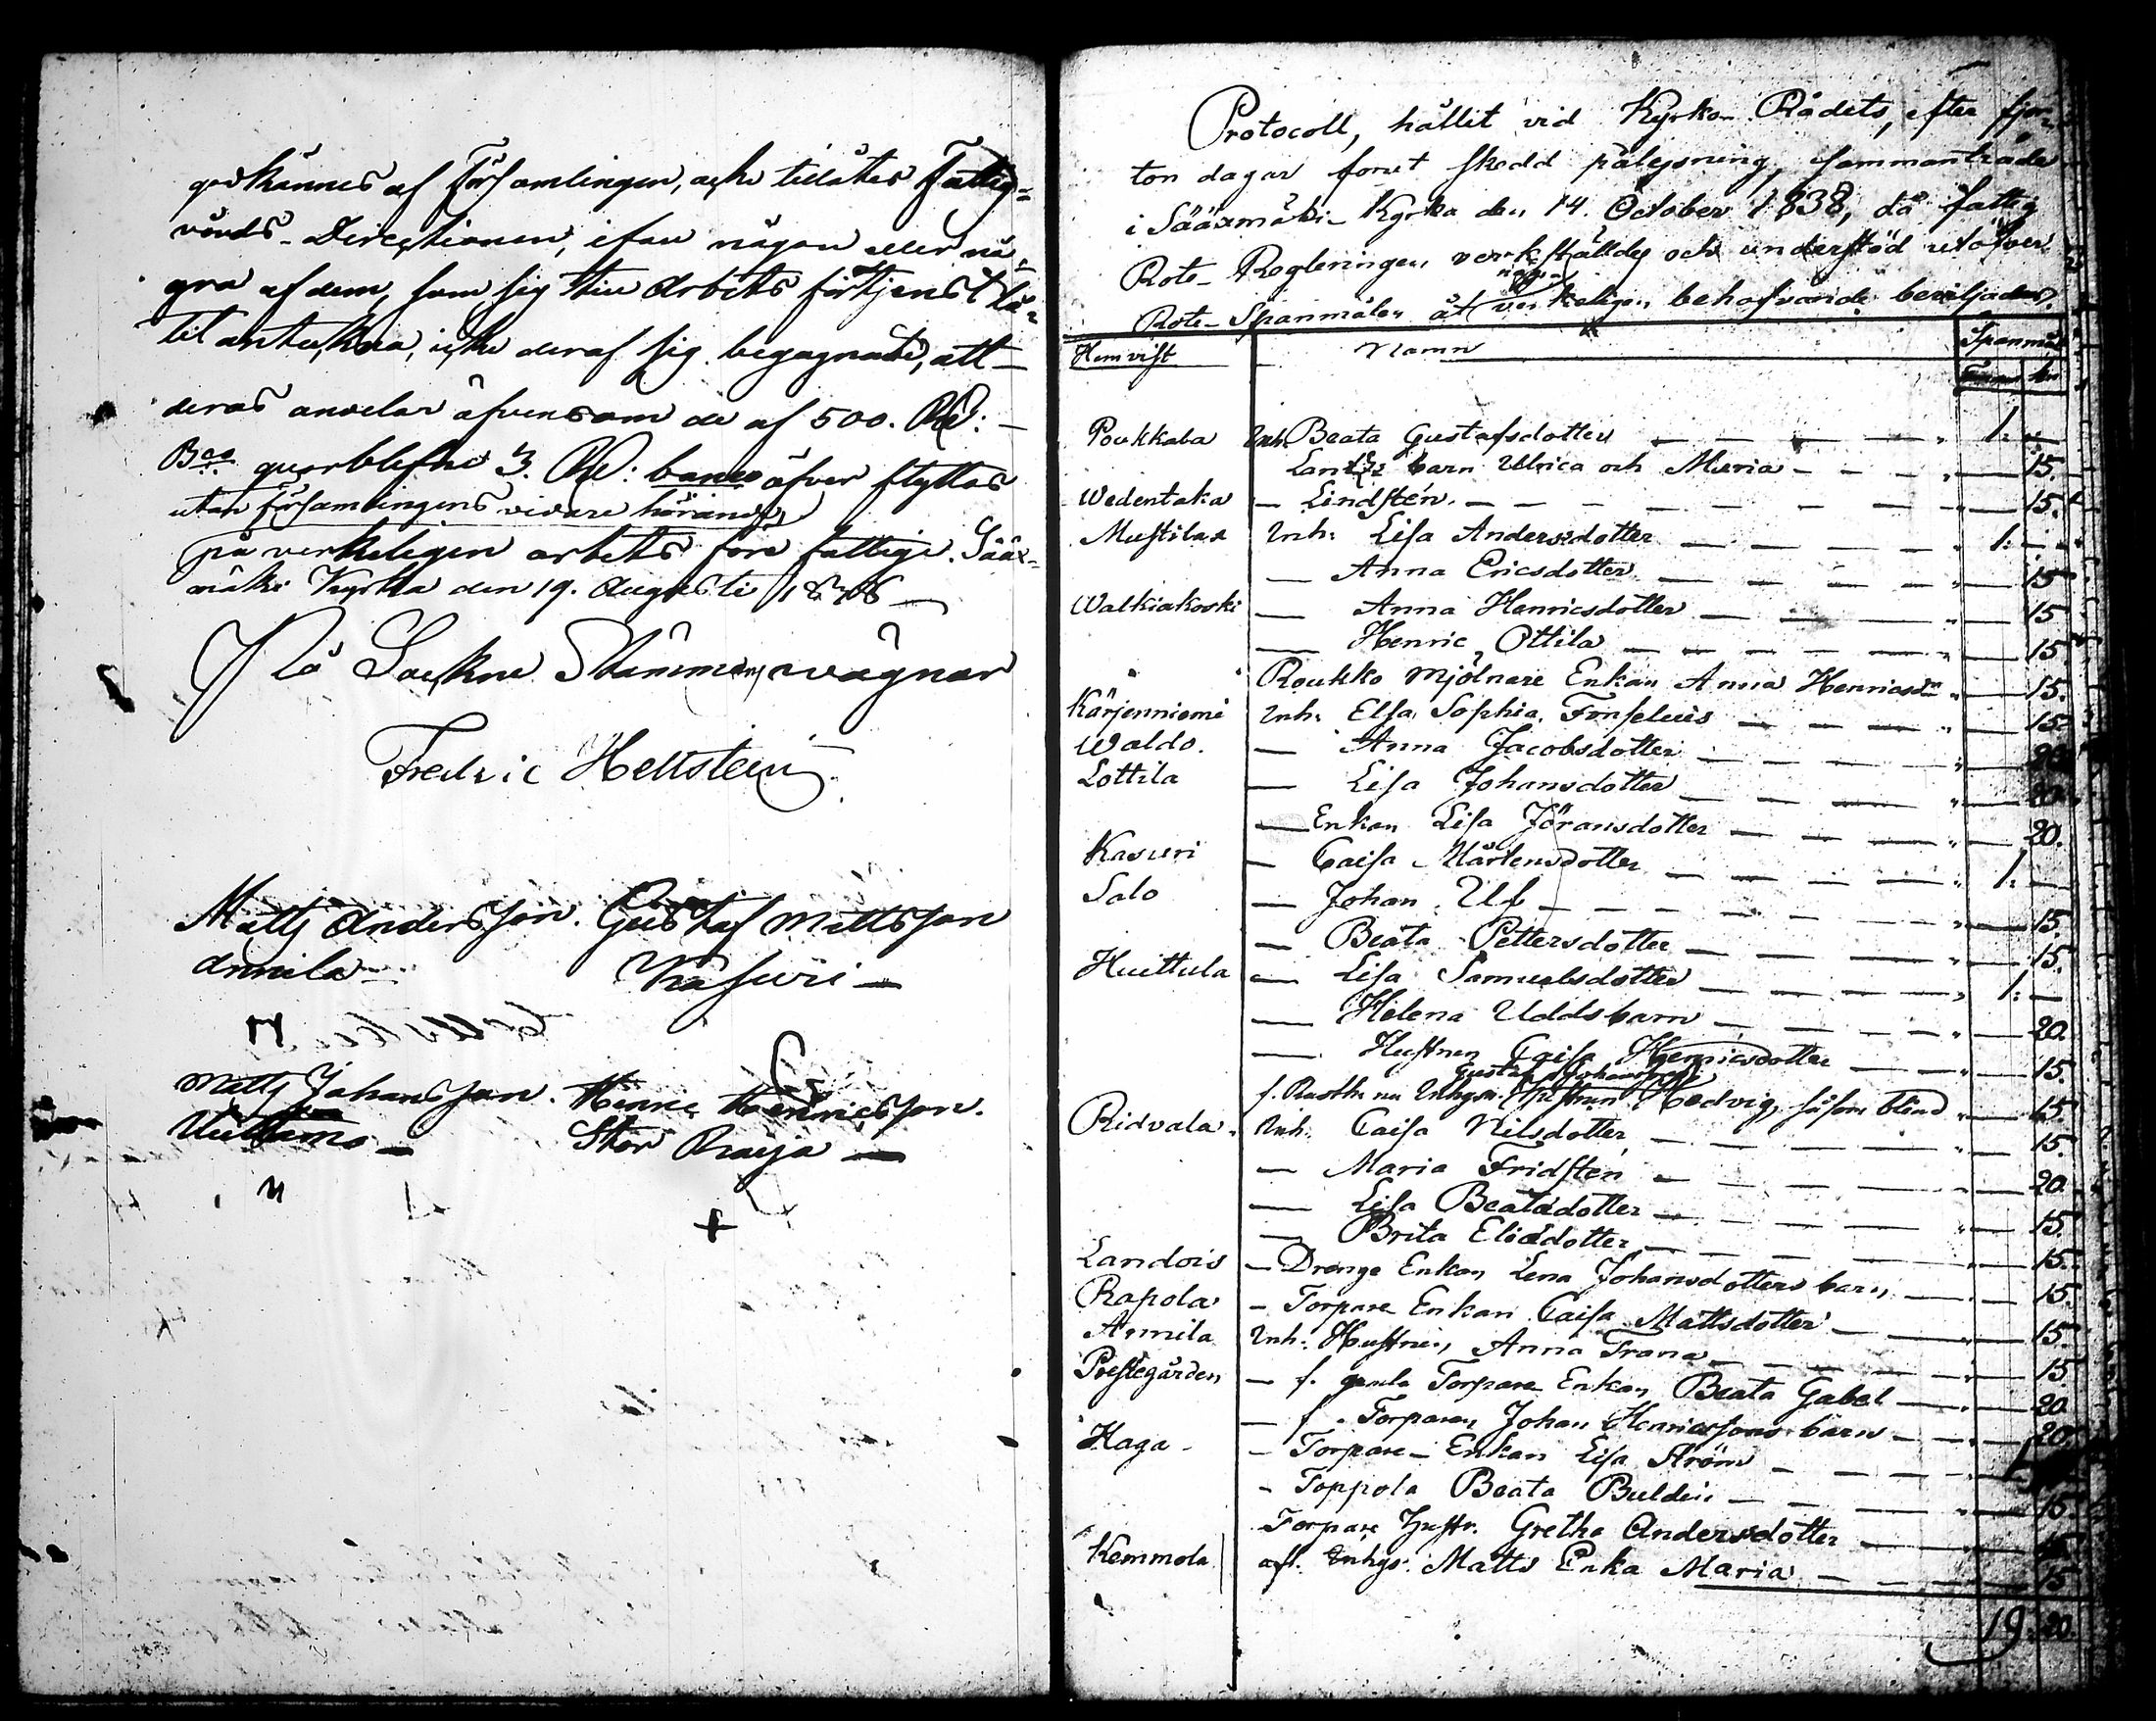 godkännes af Församlingen, acke tillåtes Fattig-
vårds-Directionen, ifan någon eller nå-
gra af dem, som sig till Arbets förtjenst lå-
tit anteckna, icke deraf sig begagnade, att
deras andelar äfvensom de af 500. Rd:
Bco qvarblefne 3. Rd: banco öfver flyttas
utan församlingens vidare hörande,
på verkeligen arbets före fattige. Sääx-
mäki Kyrka den 19. Augusti
På Sockne Stämmans vägnar
Fredric Hellsten
Matts Andersson. Gustaf Mattsson
Annila Kasuri
Matts Johansson. Henric Henricsson.
Uittamo Stor Rauja
Protocoll, hållit vid Kyrko-Rådets, efter fjor-
ton dagar förut skedd pålysning, sammanträde
i Sääxmäki Kyrka den 14. October 1838, då fattig
Rote-Regleringen verkställdes och understöd utöfver
Rote-Spanmålen åt några verkeligen behofvande beviljades.
Hemvist Namn Spanmål
Poukkala Inh. Beata Gustafsdotter 1:
barn Ulrica och Maria 15.
Wedentaka Lindstén 15.
Mustilax Inh: Lisa Andersdotter 1:
Anna Ericsdotter 15
Walkiakoski Anna Henricsdotter 15
Henric Ottila 15
Roukko Mjölnare Enkan Anna Henricsdr 15.
Kärjenniemi Inh: Elsa Sophia Fonselius 15.
Waldo. Anna Jacobsdotter 20
Lottila Lisa Johansdotter 20
Enkan Lisa Jöransdotter 20.
Kasuri Caisa Mårtensdotter 1:
Salo Johan Ulf 15.
Beata Pettersdotter 15.
Huittula Lisa Samuelsdotter 1:
Helena Udds barn 20.
Hustrun Caisa Henricsdotter 15.
Gustaf Johansson
f. Rusth. nu Inhys. Hustrun Hedvig, såsom blind 15.
Ridvala Inh: Caisa Nilsdotter 15.
Maria Fridsten 20.
Lisa Beatædotter 15.
Brita Eliædotter 15.
Landois Drenge Enkan Lena Johansdotters barn 15.
Rapola Torpare Enkan Caisa Mattsdotter 15.
Annila Inh: Hustrun Anna Trana 15
Prestegården f. gamla Torpare Enkan Beata Gabel 20
f. Torparen Johan Henricssons barn 20.
Haga Torpare-Enkan Lisa Ström
Toppola Beata Buldin 15.
Torpare Hustr. Gretha Andersdotter 15
Kemmola afl. Inhys. Matts Enka Maria 15
19. 20.